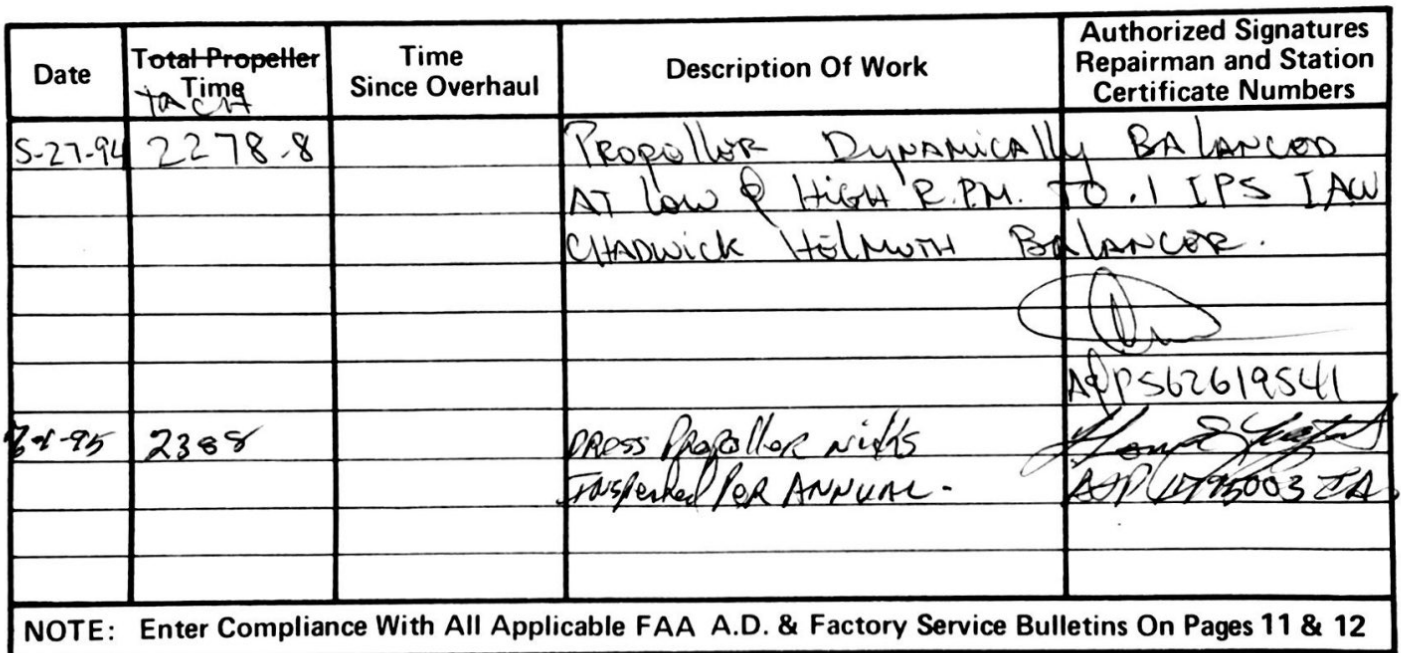 Date
Total Propeller Time
TACH
Time Since Overhaul
Description Of Work
Authorized Signatures
Repairman and Station
Certificate Numbers
5-27-94 2278.8 Propeller Dynamically Balanced
AT Low & High R.P.M. TO .1 IPS IAW
CHADWICK HELMUTH Balancer.
A&P562619541
2388 DRESS Propeller Nicks
Inspected Per ANNUAL-
NOTE: Enter Compliance With All Applicable FAA A.D. & Factory Service Bulletins On Pages 11 & 12